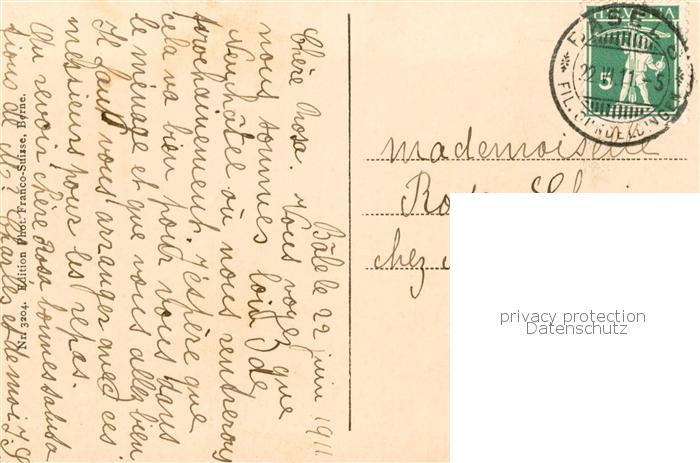 Bâle le 22 juin 1911.
Chère Rosa. Vous voyez que
nous sommes loin de
Neuchâtel où nous rentrerons
prochainement. J'espère que
cela va bien pour vous dans
le ménage et que vous allez bien
Il faut vous arranger avec ces
messieurs pour les repas.
Au revoir chère Rosa bonnes saluta
tions de M. Charles et de moi J. S
Nr. 3204. Edition Phot. Franco-Suisse, Berne.
HELVETIA
5
BASEL
22.VI.11.-5
FIL. GUNDELDINGEN
mademoiselle
chez
privacy protection
Datenschutz